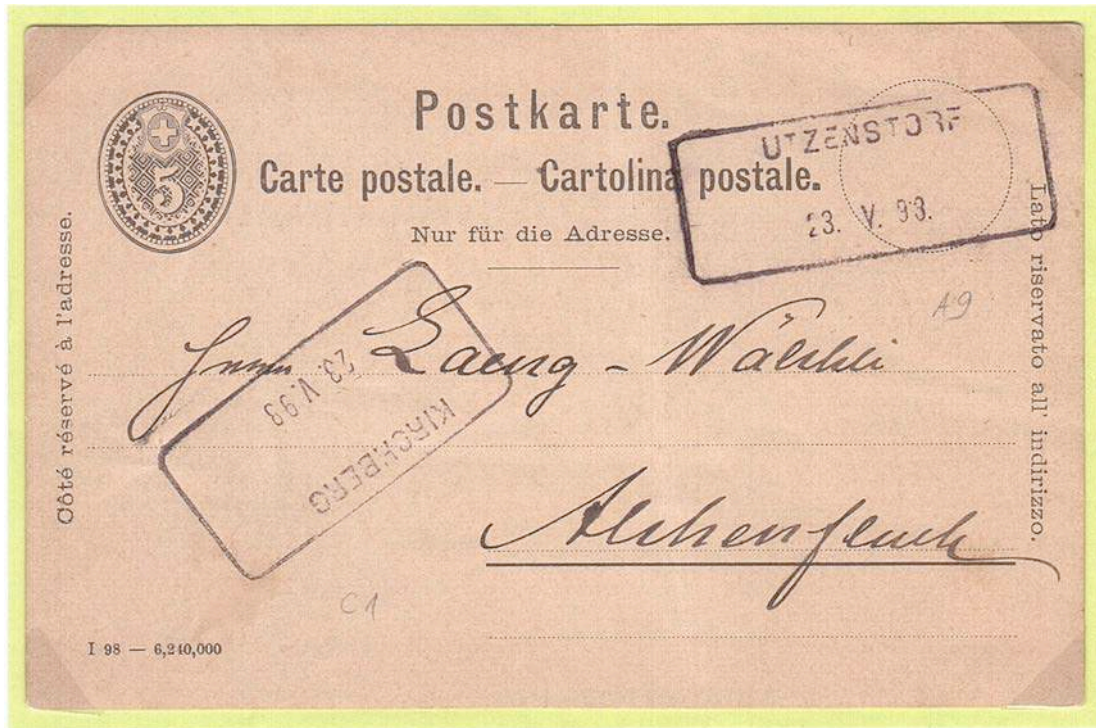 5
Postkarte.
Carte postale. — Cartolina postale.
Nur für die Adresse.
UTZENSTORF
23. V. 98.
Côté réservé à l'adresse.
Lato riservato all' indirizzo.
A9
Herrn Laeng - Wälchli
KIRCHBERG
23. V. 98
Alchenflueh
C1
I 98 — 6,240,000